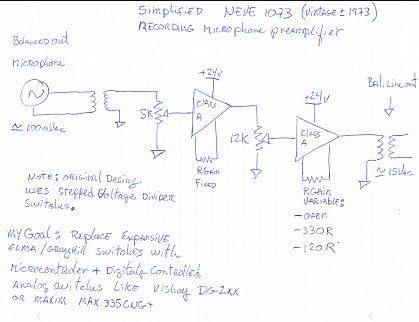 Simplified NEVE 1073 (VINTAGE ± 1973)
RECORDING Microphone preamplifier
Balanced out
Microphone
≈ 100mVac
5K
+24V
CLASS
A
RGAIN
FIXED
12K
+24V
CLASS
A
RGAIN
VARIABLE:
- OPEN
- 330R
- 120R
Bal. Line out
≈ 15Vac
NOTE: ORIGINAL Desing
USES Stepped Voltage Divider
Switches.
MY Goal: Replace Expansive
ELMA/GrayHill switches with
Microcontroder + Digitaly Controlled
Analog switches Like Vishay DG-2XX
OR MAXIM MAX335CNG+